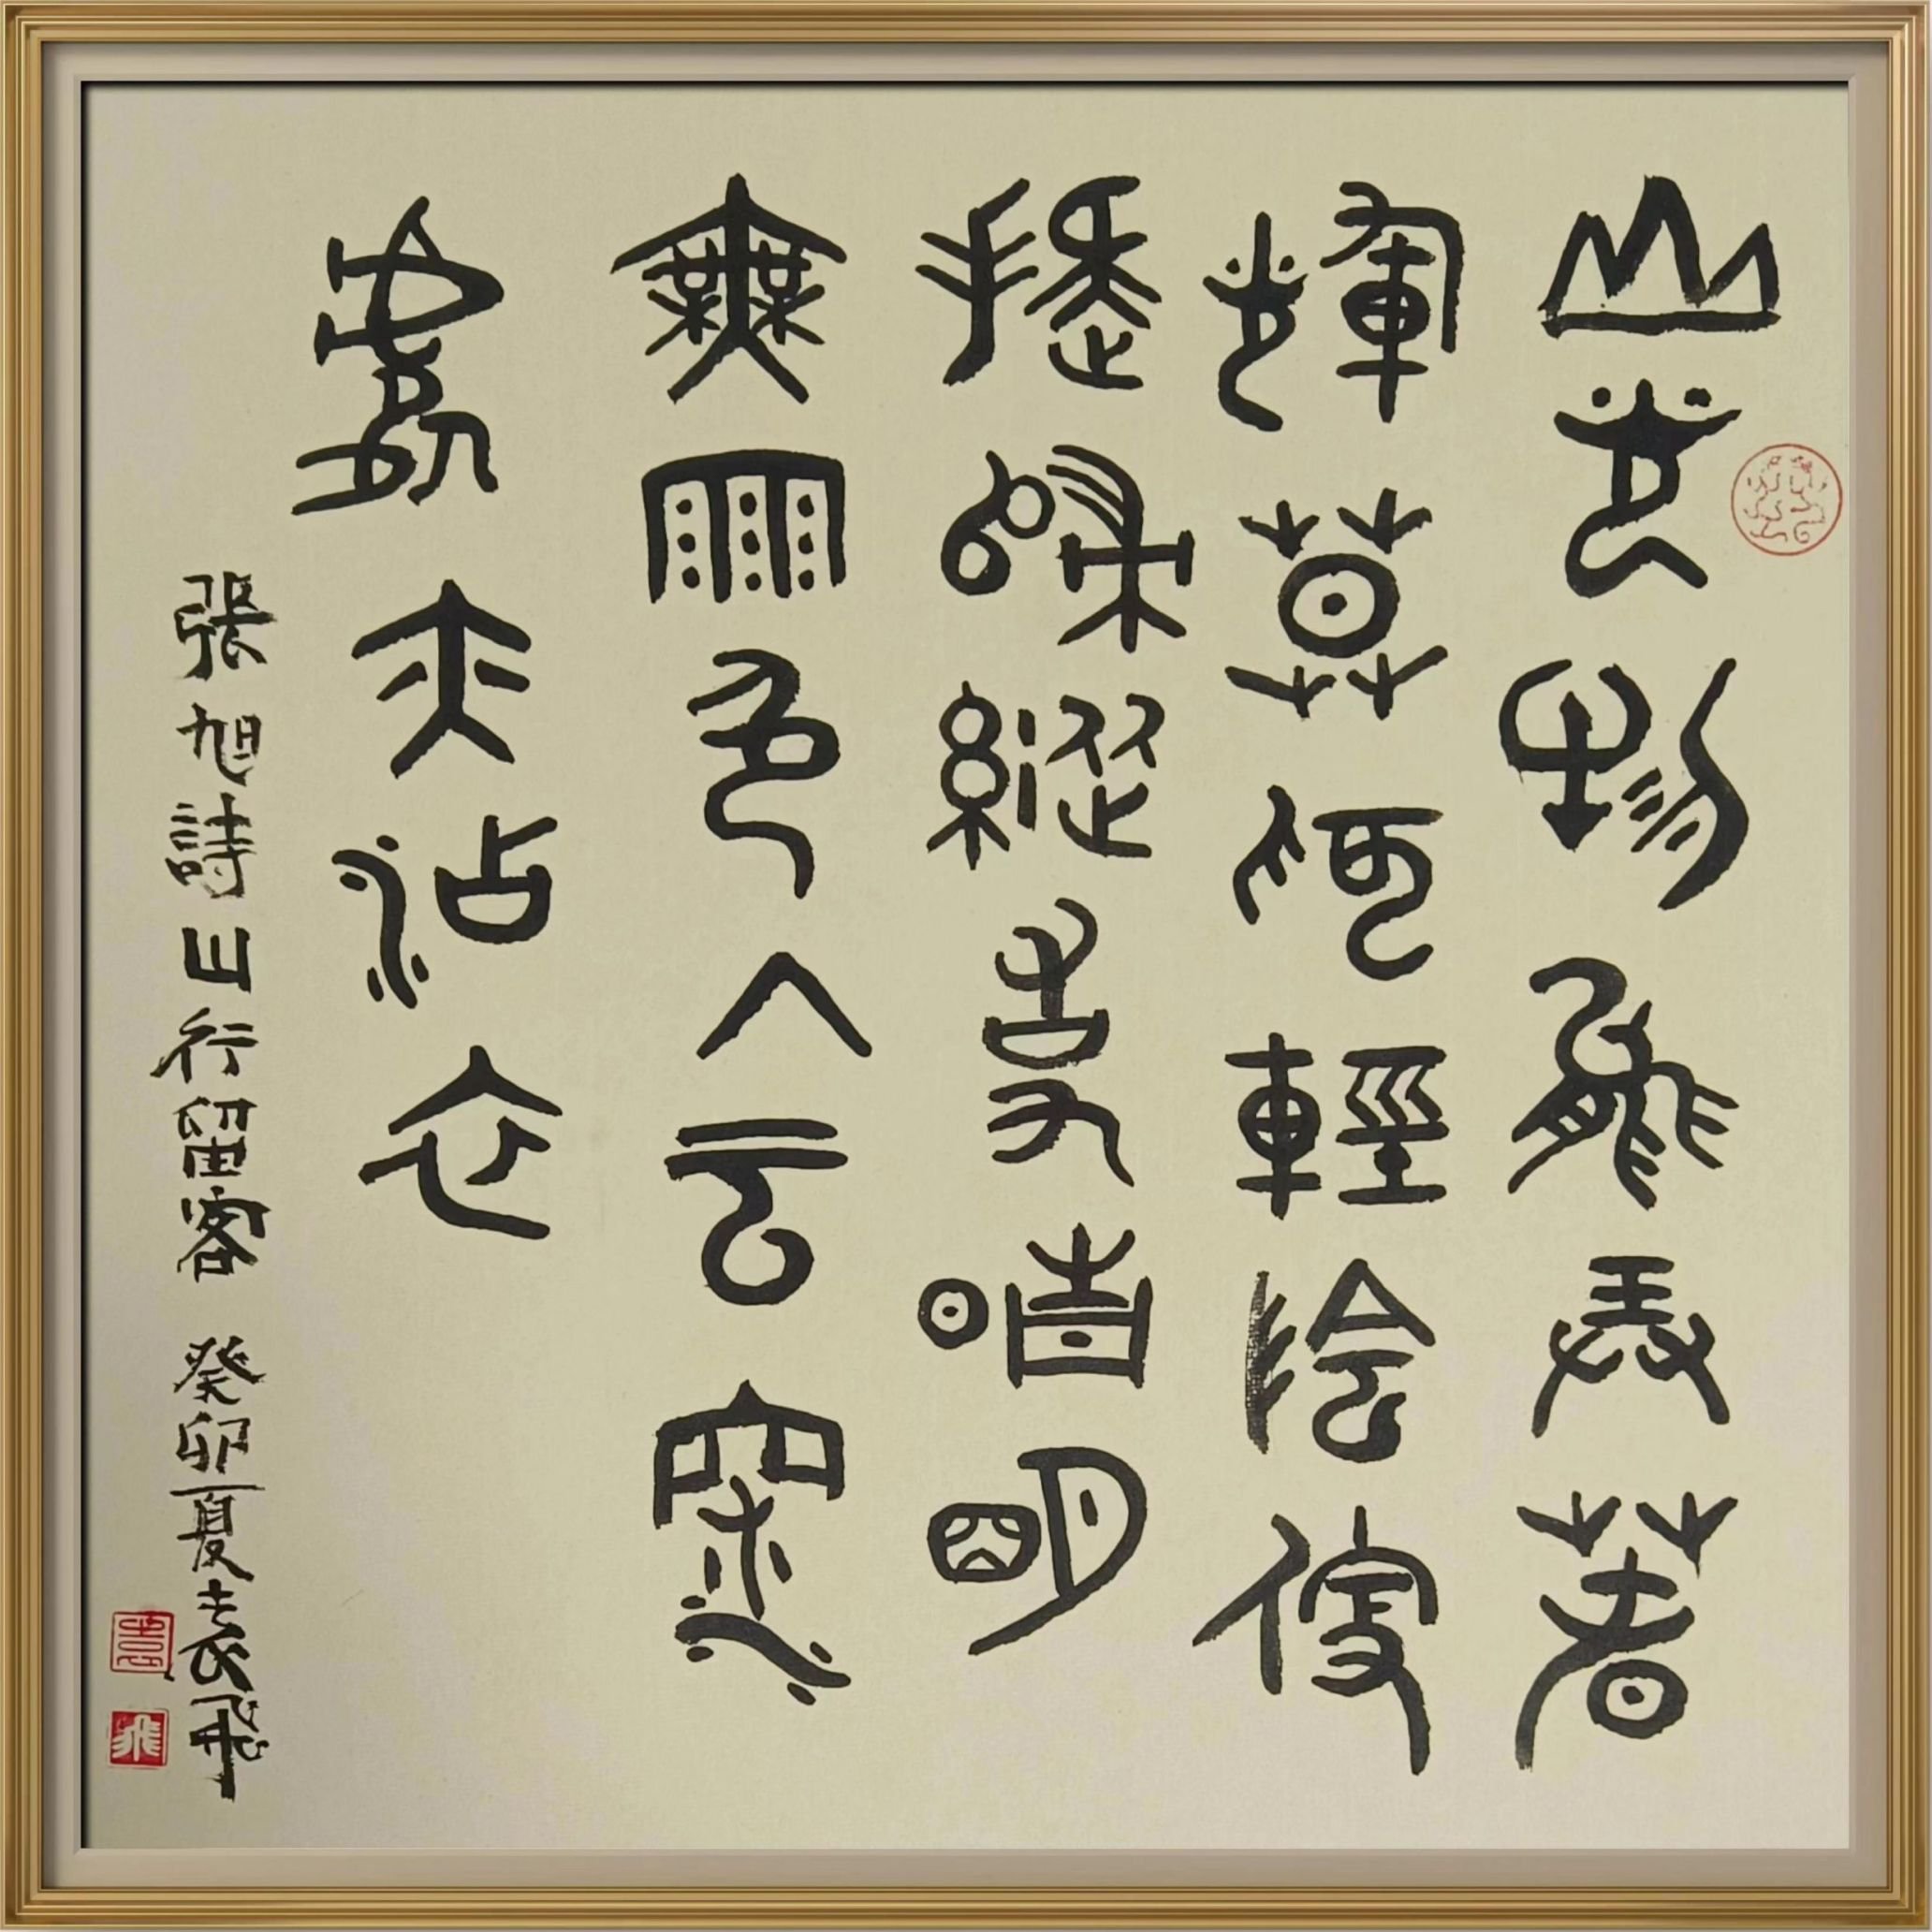 山光物能弄春
輝莫為輕陰便
擬歸縱使晴明
無雨色入云深
處亦沾衣
張旭詩山行留客 癸卯夏袁飛
袁
飛